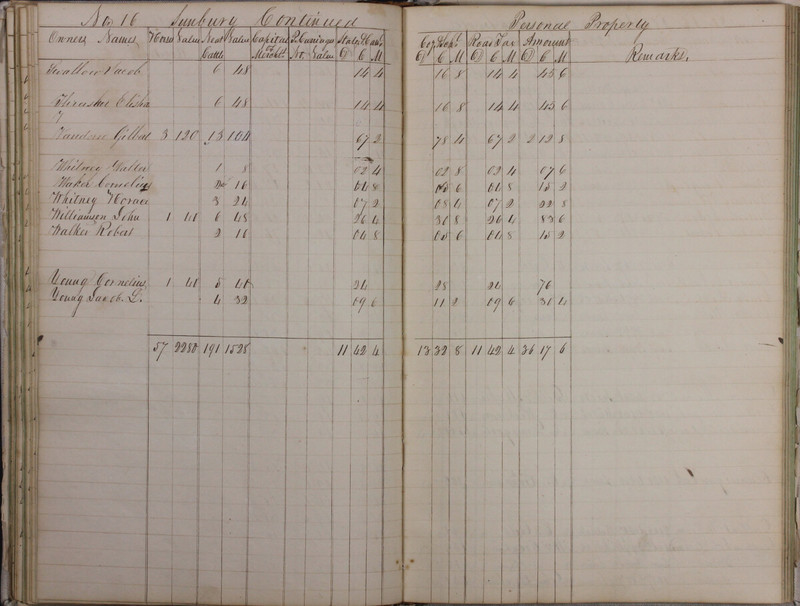 No 16 Sunbury Continued Personal Property
Owners Names Horses Value Neat Cattle Value Capital Mercht Value State & Canl D C M Co & Schl D C M Road Tax D C M Amount D C M Remarks.
Swallow Jacob 6 48 14 4 16 8 14 4 45 6
Thrasher Elisha 6 48 14 4 16 8 14 4 45 6
Gilbert 3 120 13 104 67 2 78 4 67 2 2 12 8
Whitney Walter 1 8 02 4 02 8 02 4 07 6
Waker Cornelius 2 16 04 8 05 6 04 8 15 2
Whitney Horace 3 24 07 2 08 4 07 2 22 8
Williamson John 1 40 6 48 26 4 30 8 26 4 83 6
Walker Robert 2 16 04 8 05 6 04 8 15 2
Young Cornelius 1 40 5 40 24 28 24 76
Young Jacob. L. 4 32 09 6 11 2 09 6 30 4
57 2280 191 1528 11 42 4 13 32 8 11 42 4 36 17 6